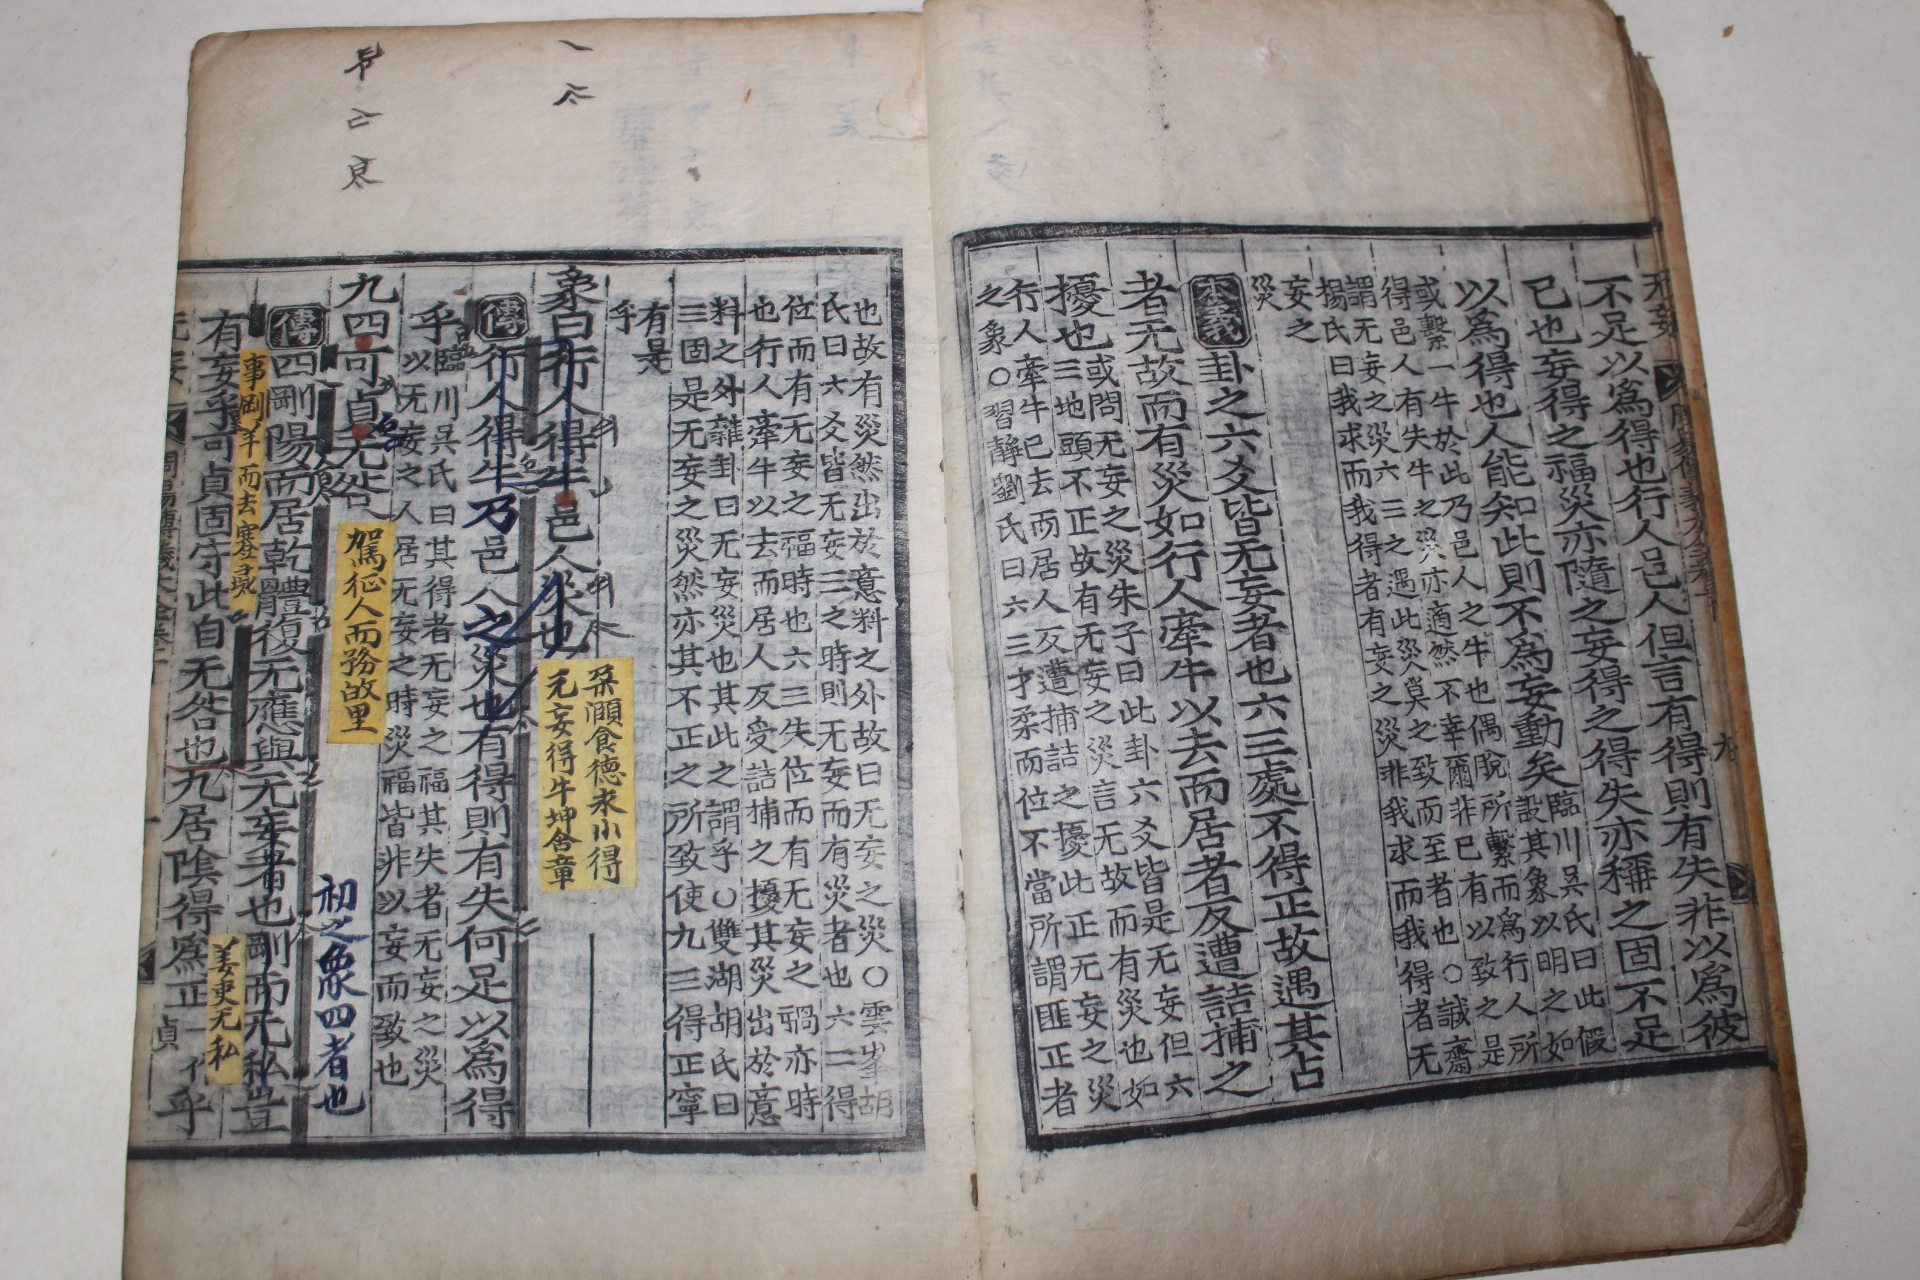 不足以爲得也行人邑人但言有得則有失非以爲彼
已也妄得之福災亦隨之妄得之得失亦稱之固不足
以爲得也人能知此則不爲妄動矣
臨川吳氏曰此假
設其象以明之如
或繫一牛於此乃邑人之牛也偶脫所繫而爲行人所
得邑人有失牛之災亦適然不幸爾非已有以致之是
謂无妄之災六三之遇此災莫之致而至者也○誠齋
楊氏曰我求而我得者有妄之災非我求而我得者无
妄之
災
本義
卦之六爻皆无妄者也六三處不得正故遇其占
者无故而有災如行人牽牛以去而居者反遭詰捕之
擾也
或問无妄之災朱子曰此卦六爻皆是无妄但六
三地頭不正故有无妄之災言无故而有災也如
行人牽牛已去而居人反遭捕詰之擾此正无妄之災
之象○習靜劉氏曰六三才柔而位不當所謂匪正者
也故有災然出於意料之外故曰无妄之災○雲峯胡
氏曰六爻皆无妄三之時則无妄而有災者也六二得
位而有无妄之福時也六三失位而有无妄之禍亦時
也行人牽牛以去而居人反受詰捕之擾其災出於意
料之外雜卦曰无妄災也其此之謂乎○雙湖胡氏曰
三固是无妄之災然亦其不正之所致使九三得正寧
有是
乎
象曰行人得牛邑人災也
朶頤食德求小得
无妄得牛坤含章
傳
行人得牛乃邑人之災也有得則有失何足以爲得
乎
臨川吳氏曰其得者无妄之福其失者无妄之災
以无妄之人居无妄之時災福皆非以妄而致也
九四可貞无咎
駕征人而務故里
初之象四者也
傳
四剛陽而居乾體復无應與无妄者也剛而无私豈
有妄乎可貞固守此自无咎也九居陰得爲正